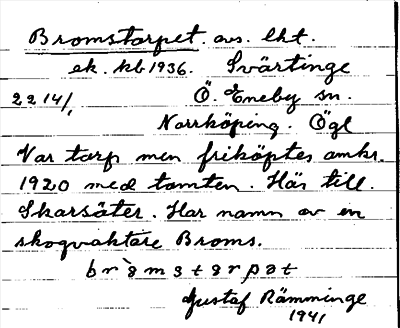 Bromstorpet. avs. lht.
ek. kb 1936. Svärtinge
2214/1 Ö. Eneby sn.
Norrköping. Ögl
Var torp men friköptes omkr.
1920 med tomten. Hör till.
Skarsäter. Har namn av en
skogvaktare Broms.
Gustaf Rämminge
1941